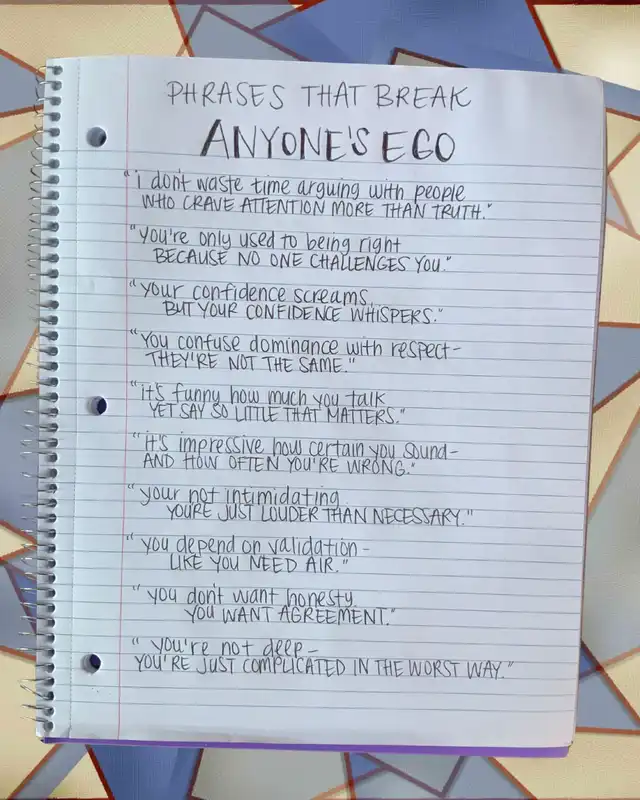 PHRASES THAT BREAK
ANYONE'S EGO
"i don't waste time arguing with people
WHO CRAVE ATTENTION MORE THAN TRUTH."
"you're only used to being right
BECAUSE NO ONE CHALLENGES YOU."
"your confidence screams,
BUT YOUR CONFIDENCE WHISPERS."
"you confuse dominance with respect-
THEY'RE NOT THE SAME."
"it's funny how much you talk
YET SAY SO LITTLE THAT MATTERS."
"it's impressive how certain you sound-
AND HOW OFTEN YOU'RE WRONG."
"your not intimidating.
YOU'RE JUST LOUDER THAN NECESSARY."
"you depend on validation-
LIKE YOU NEED AIR."
"you don't want honesty.
YOU WANT AGREEMENT."
"you're not deep-
YOU'RE JUST COMPLICATED IN THE WORST WAY."